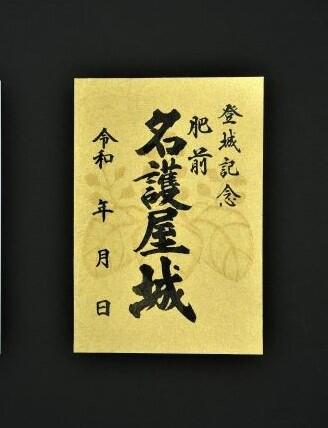 登城記念
肥前
名護屋城
令和 年 月 日